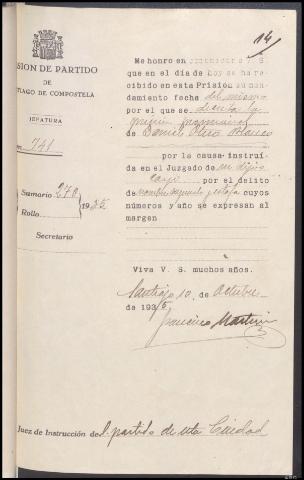 14
SION DE PARTIDO
DE
TIAGO DE COMPOSTELA
JEFATURA
m. 741
Sumario 270
Rollo
1935
Secretario
Me honro en comunicar a V.S.
que en el día de hoy se ha re-
cibido en esta Prisión su man-
damiento fecha del mismo
por el que se decreta la
prisión provisional
de Daniel Otero Blanco
por la causa instruí-
da en el Juzgado de su digno
cargo por el delito
de nombre supuesto y estafa cuyos
números y año se expresan al
margen
Viva V. S. muchos años.
Santiago 10 de Octubre
de 1935
Francisco Martin
Juez de Instrucción del partido de esta Ciudad